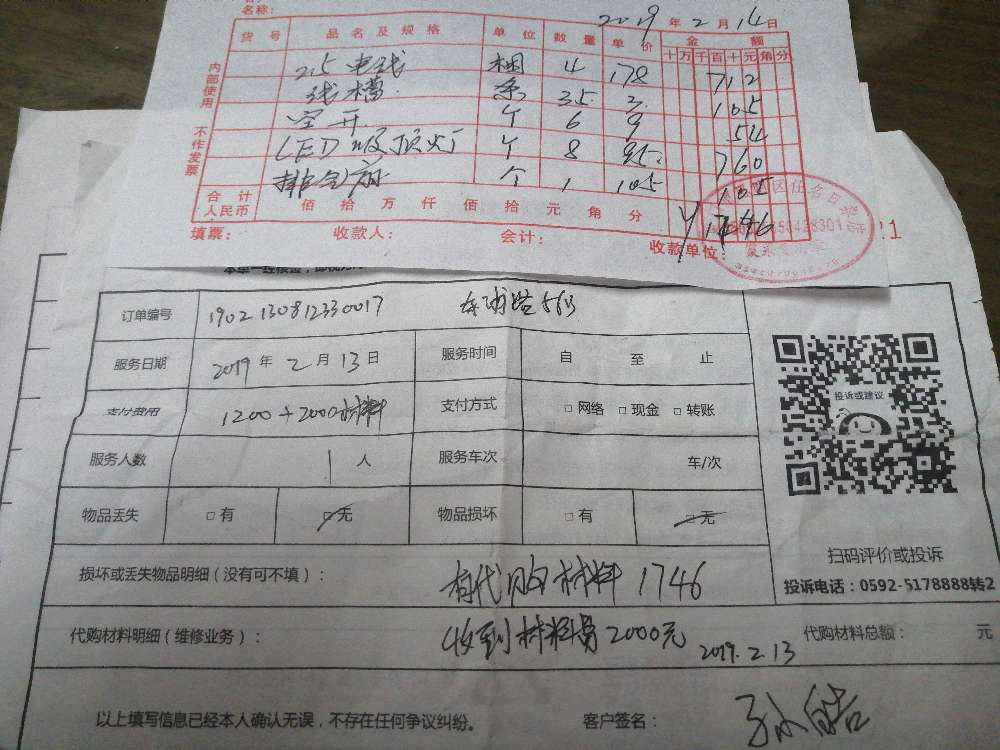 名称：
2019 年 2 月 14 日
货号 品名及规格 单位 数量 单价 金额
十 万 千 百 十 元 角 分
内部使用 不作发票
2.5 电线 捆 4 178 712
线槽 条 35 3 105
空开 个 6 9 54
LED 吸顶灯 个 8 95 760
排气扇 个 1 105 105
合计人民币 佰 拾 万 仟 佰 拾 元 角 分 ¥1746
填票： 收款人： 会计： 收款单位：
订单编号 1902130812330017
服务日期 2019 年 2 月 13 日 服务时间 自 至 止
支付费用 1200+2000材料 支付方式 □ 网络 □ 现金 □ 转账
服务人数 1 人 服务车次 车/次
物品丢失 □ 有 □ 无 物品损坏 □ 有 □ 无
投诉或建议
扫码评价或投诉
投诉电话：0592-5178888转2
损坏或丢失物品明细（没有可不填）： 有代购材料 1746
代购材料明细（维修业务）： 收到材料费2000元 2019.2.13 代购材料总额： 元
以上填写信息已经本人确认无误，不存在任何争议纠纷。 客户签名： 孙皓